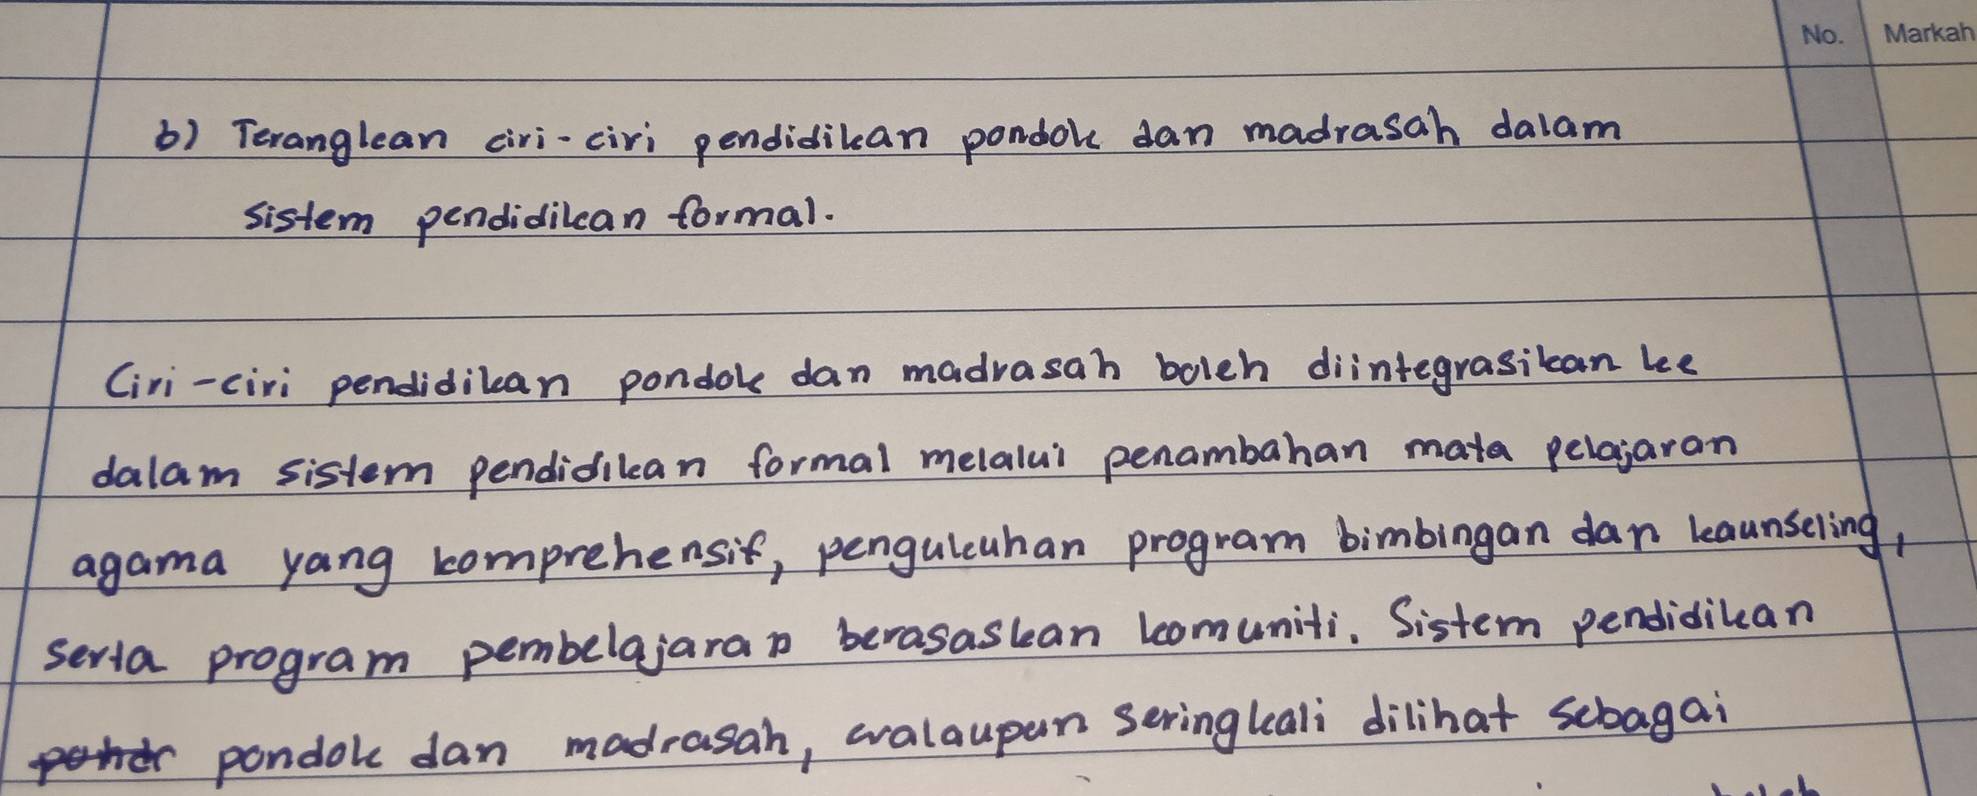 No. Markah
b) Terangkan ciri-ciri pendidikan pondok dan madrasah dalam
sistem pendidikan formal.
Ciri-ciri pendidikan pondok dan madrasah boleh diintegrasikan ke
dalam sistem pendidikan formal melalui penambahan mata pelajaran
agama yang komprehensif, pengukuhan program bimbingan dan kaunseling,
serta program pembelajaran berasaskan komuniti. Sistem pendidikan
pondok dan madrasah, walaupun seringkali dilihat sebagai